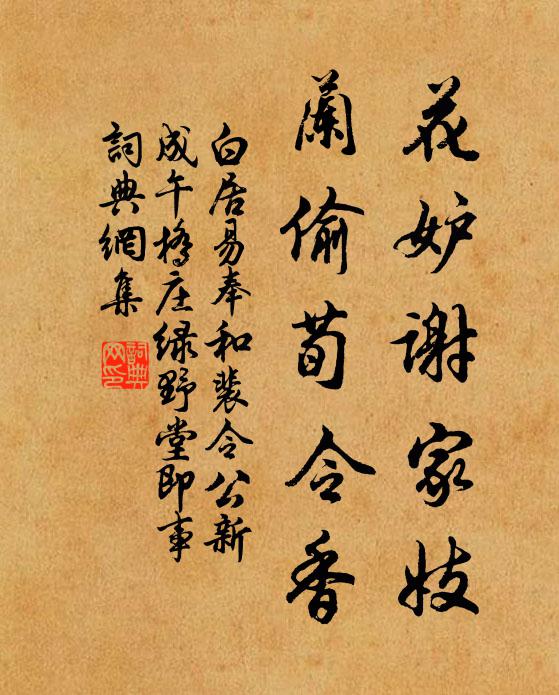 花妒谢家妓
蘭偷荀令香
白居易奉和裴令公新
成午橋庄绿野堂即事
詞典網集
詞典网印